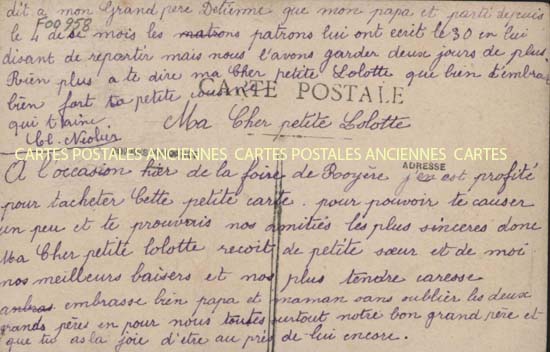 dit a mon Grand père Detienne que mon papa et parti depuis
le 4 de se mois les matrons patrons lui ont ecrit le 30 en lui
disant de repartir mais nous l'avons garder deux jours de plus.
Rien plus a te dire ma Cher petite Lolotte que bien d'embras
bien fort ta petite
qui t'aime
F00958
CARTE POSTALE
Ma Cher petite Lolotte
CARTES POSTALES ANCIENNES CARTES POSTALES ANCIENNES CARTES
ADRESSE
A l'occasion hier de la foire de Royère j'en est profité
pour t'acheter Cette petite carte. pour pouvoir te causer
un peu et te prouvais nos amitiés les plus sinceres donc
Ma Cher petite lolotte recoit de petite sœur et de moi
nos meilleurs baisers et nos plus tendre caresse
embrasse bien papa et maman sans oublier les deux
grands pères en pour nous toutes surtout notre bon grand père et
que tu as la joie d'être au près de lui encore.